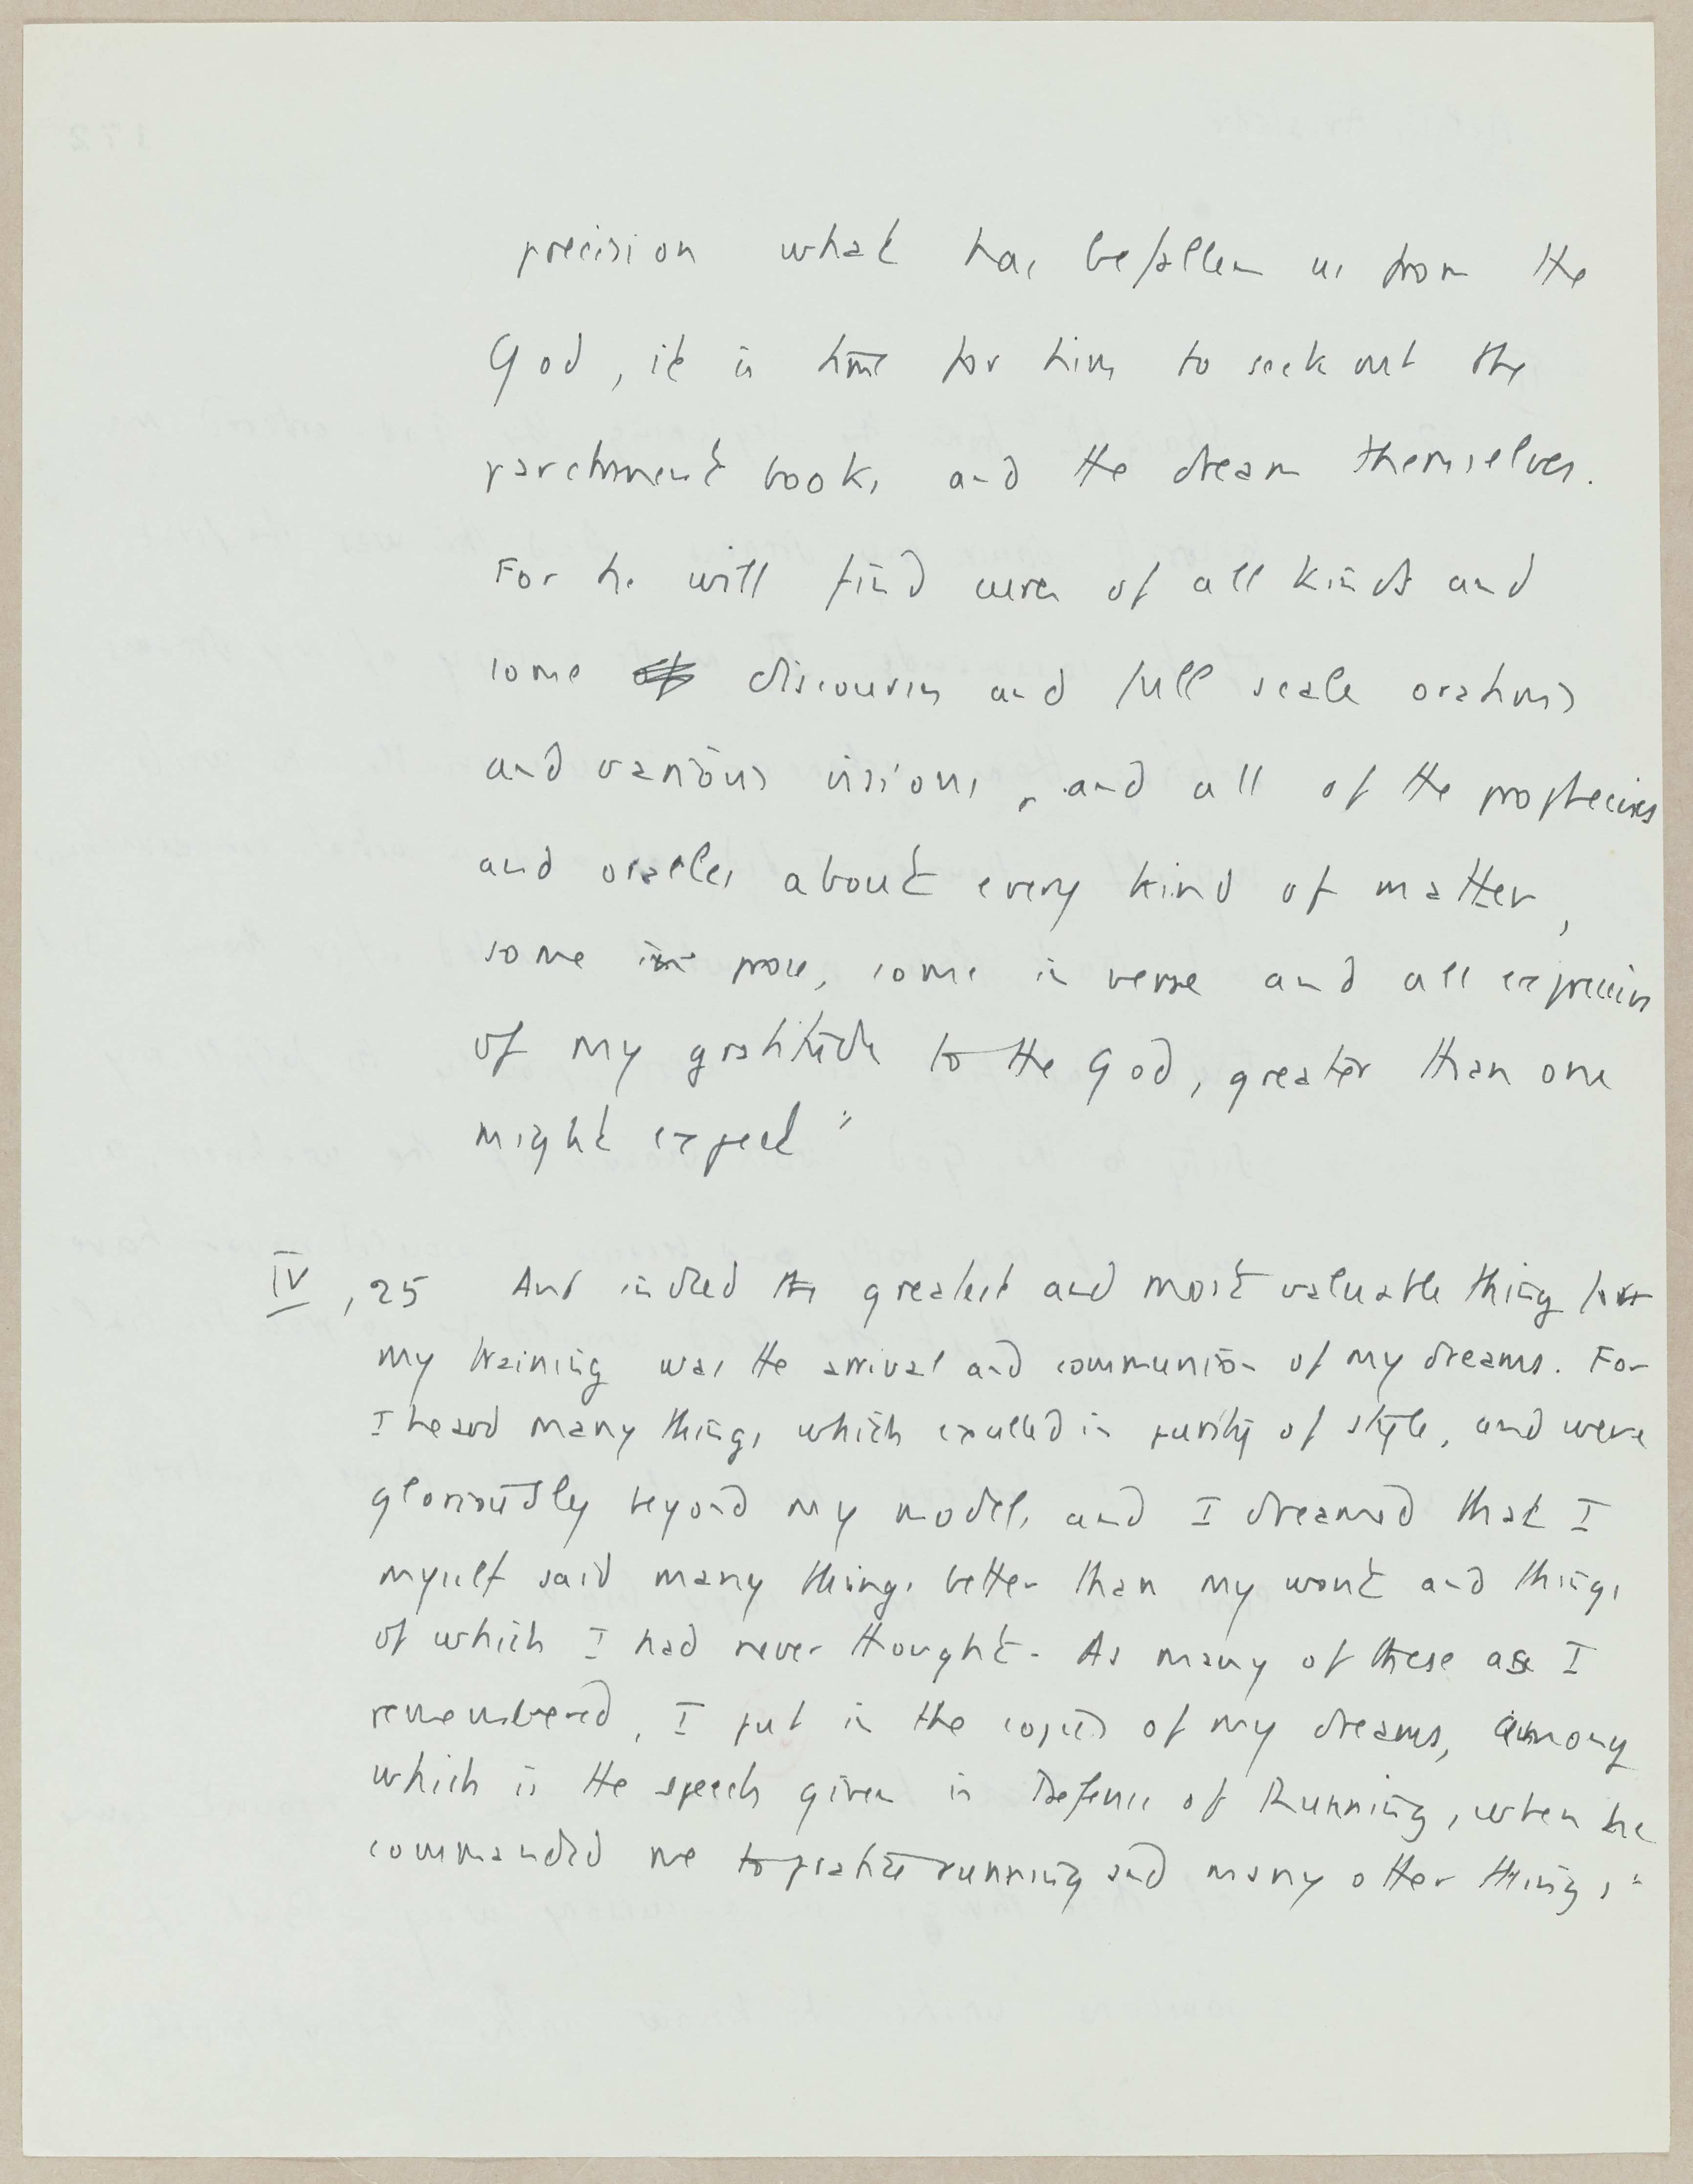 precision what has befallen us from the
God, it is time for him to seek out the
parchment books and the dream themselves.
For he will find cures of all kinds and
some discourses and full scale orations
and various visions, and all of the prophecies
and oracles about every kind of matter,
some in prose, some in verse and all expressive
of my gratitude to the God, greater than one
might expect"
IV, 25 And indeed the greatest and most valuable thing for
my training was the arrival and communion of my dreams. For
I heard many things which excelled in purity of style, and were
gloriously beyond my models and I dreamed that I
myself said many things better than my wont and things
of which I had never thought. As many of these as I
remembered, I put in the copies of my dreams, among
which is the speech given in Defense of Running, when he
commanded me to practice running and many other things"